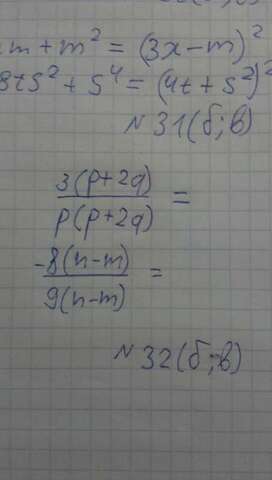 m + m² = (3x – m)²
8ts² + s⁴ = (4t + s²)²
N 31(б; в)
3(p+2q)
p(p+2q) =
-8(n-m)
9(n-m) =
N 32(б; в)